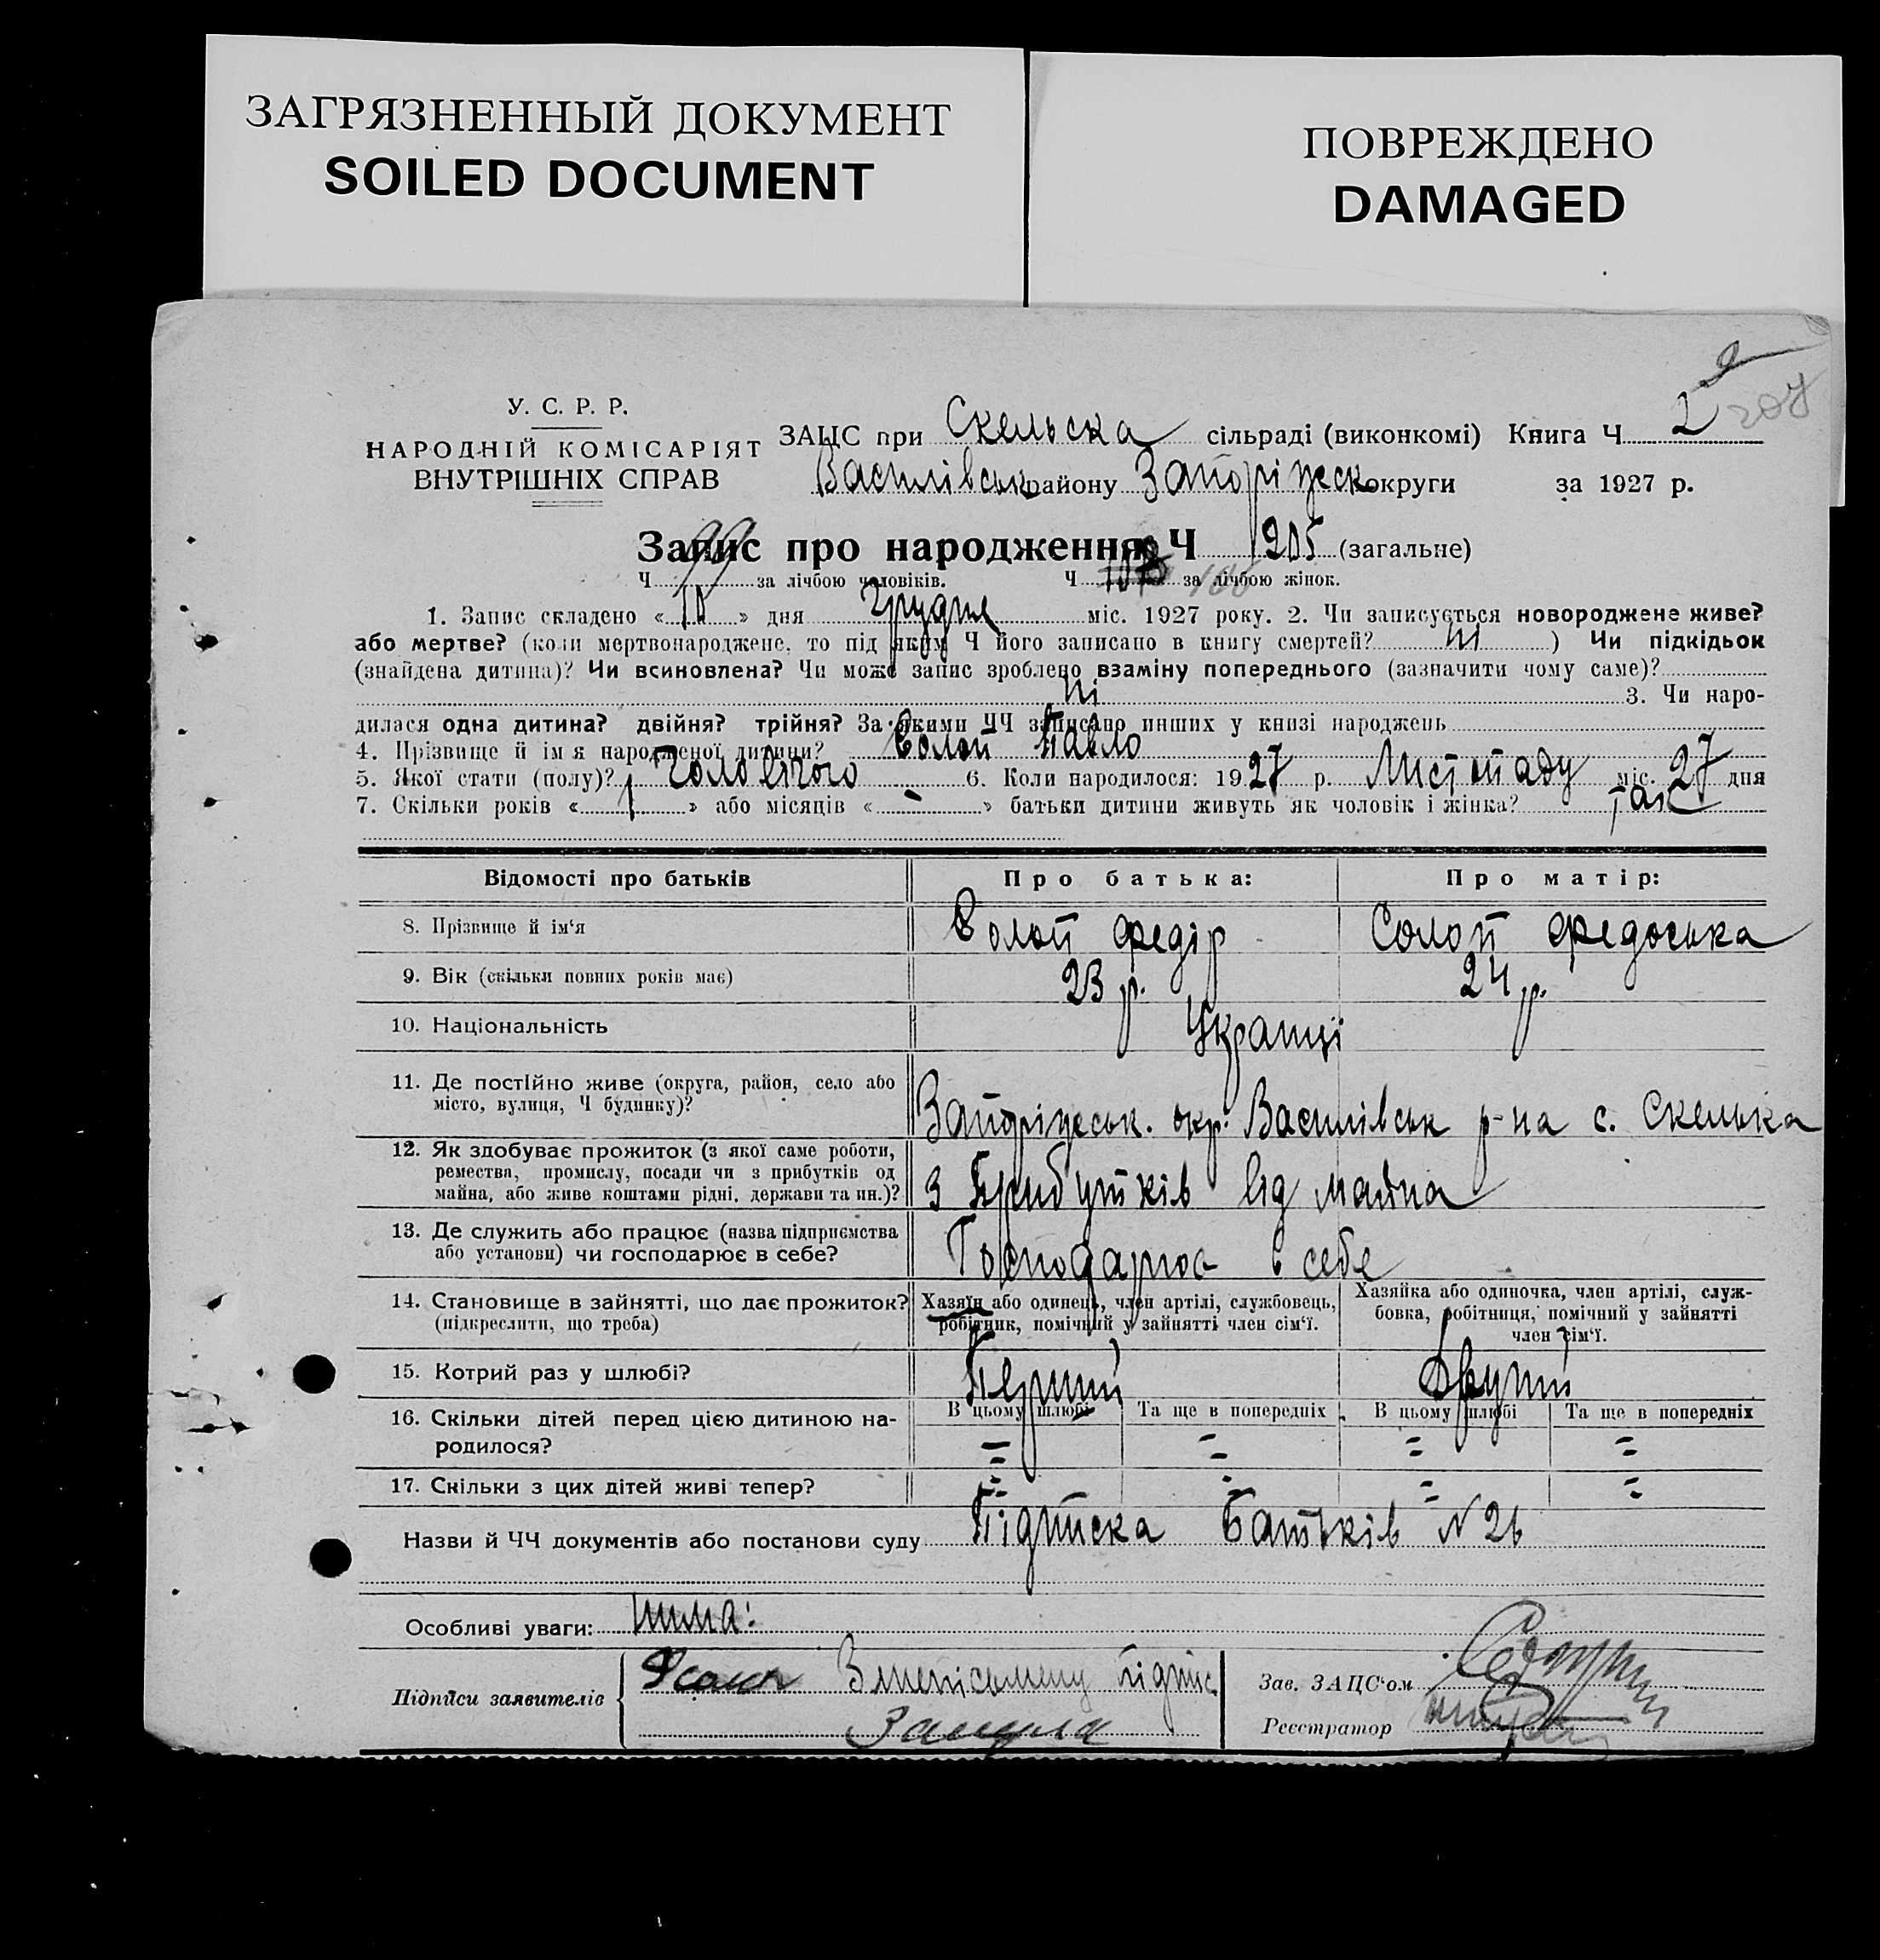 ЗАГРЯЗНЕННЫЙ ДОКУМЕНТ
SOILED DOCUMENT
ПОВРЕЖДЕНО
DAMAGED
У. С. Р. Р.
НАРОДНІЙ КОМІСАРІЯТ
ВНУТРІШНІХ СПРАВ
ЗАЦС при Скельска сільраді (виконкомі) Книга Ч 2
Василівськ району Запоріжск округи за 1927 р.
Запис про народження Ч 205 (загальне)
Ч 99 за лічбою чоловіків. Ч за лічбою жінок.
1. Запис складено «10» дня Грудня міс. 1927 року. 2. Чи записується новороджене живе?
або мертве? (коли мертвонароджене, то під яким Ч його записано в книгу смертей? ні ) Чи підкідьок
(знайдена дитина)? Чи всиновлена? Чи може запис зроблено взаміну попереднього (зазначити чому саме)?
ні 3. Чи наро-
дилася одна дитина? двійня? трійня? За якими ЧЧ записано инших у книзі народжень
4. Прізвище й імя народженої дитини? Солоп Павло
5. Якої стати (полу)? Чоловічого 6. Коли народилося: 1927 р. Листопаду міс. 27 дня
7. Скільки років « 1 » або місяців « - » батьки дитини живуть як чоловік і жінка? так
Відомості про батьків
Про батька:
Про матір:
8. Прізвище й ім‘я
Солоп Федір
Солоп Федоська
9. Вік (скільки повних років має)
23 р.
24 р.
10. Національність
Українці
11. Де постійно живе (округа, район, село або
місто, вулиця, Ч будинку)?
Запоріжськ. окр. Василівськ р-на с. Скелька
12. Як здобуває прожиток (з якої саме роботи,
ремества, промислу, посади чи з прибутків од
майна, або живе коштами рідні, держави та ин.)?
З Прибутків від майна
13. Де служить або працює (назва підприємства
або установи) чи господарює в себе?
Господарює в себе
14. Становище в зайнятті, що дає прожиток?
(підкреслити, що треба)
Хазяїн або одинець, член артілі, службовець,
робітник, помічний у зайнятті член сім‘ї.
Хазяйка або одиночка, член артілі, служ-
бовка, робітниця, помічний у зайнятті
член сім‘ї.
15. Котрий раз у шлюбі?
Перший
Другий
16. Скільки дітей перед цією дитиною на-
родилося?
В цьому шлюбі
Та ще в попередніх
В цьому шлюбі
Та ще в попередніх
17. Скільки з цих дітей живі тепер?
Назви й ЧЧ документів або постанови суду Підписка Батьків N 26
Особливі уваги: нима:
Підписи заявителів
підпис
Зав. ЗАЦС‘ом
Реєстратор